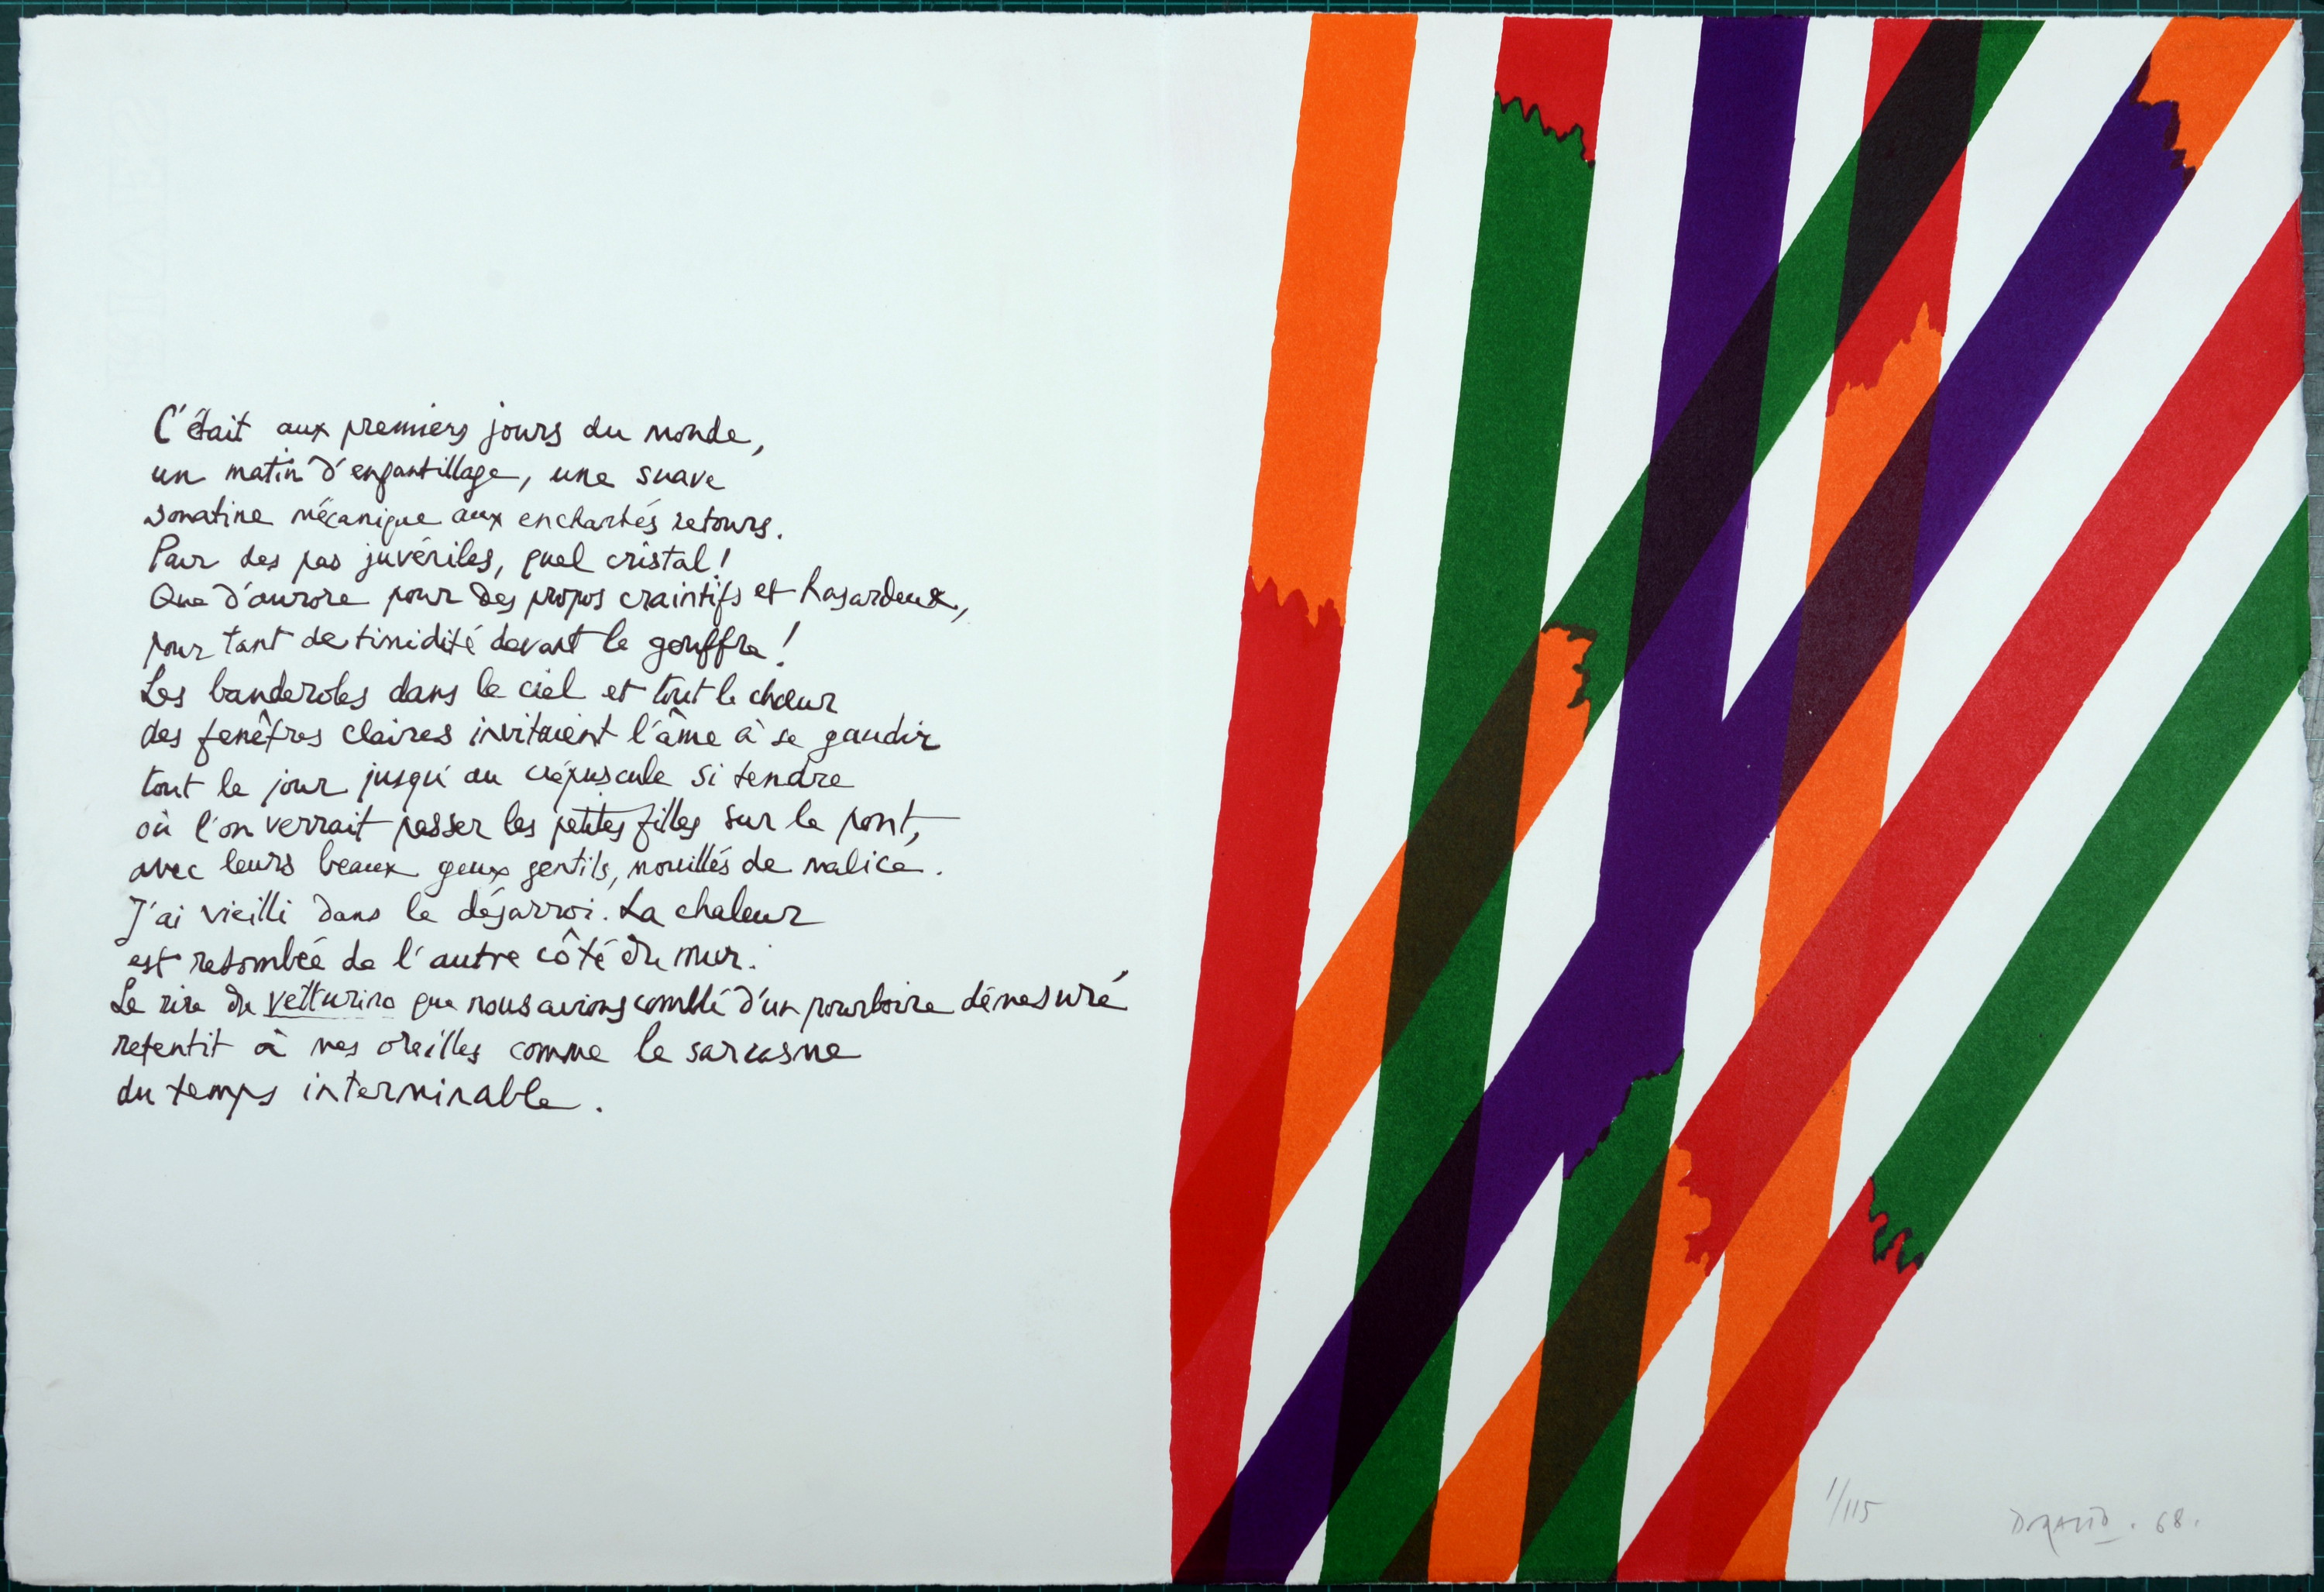 C'était aux premiers jours du monde,
un matin d'enfantillage, une suave
sonatine mécanique aux enchantés retours.
Pour des pas juvéniles, quel cristal !
Que d'aurore pour des propos craintifs et hasardeux,
pour tant de timidité devant le gouffre !
Les banderoles dans le ciel et tout le chœur
des fenêtres claires invitaient l'âme à se gaudir
tout le jour jusqu'au crépuscule si tendre
où l'on verrait passer les petites filles sur le pont,
avec leurs beaux yeux gentils, mouillés de malice.
J'ai vieilli dans le désarroi. La chaleur
est retombée de l'autre côté du mur.
Le rire du vetturino que nous avions comblé d'un pourboire démesuré
retentit à mes oreilles comme le sarcasme
du temps interminable.
1/115
68.